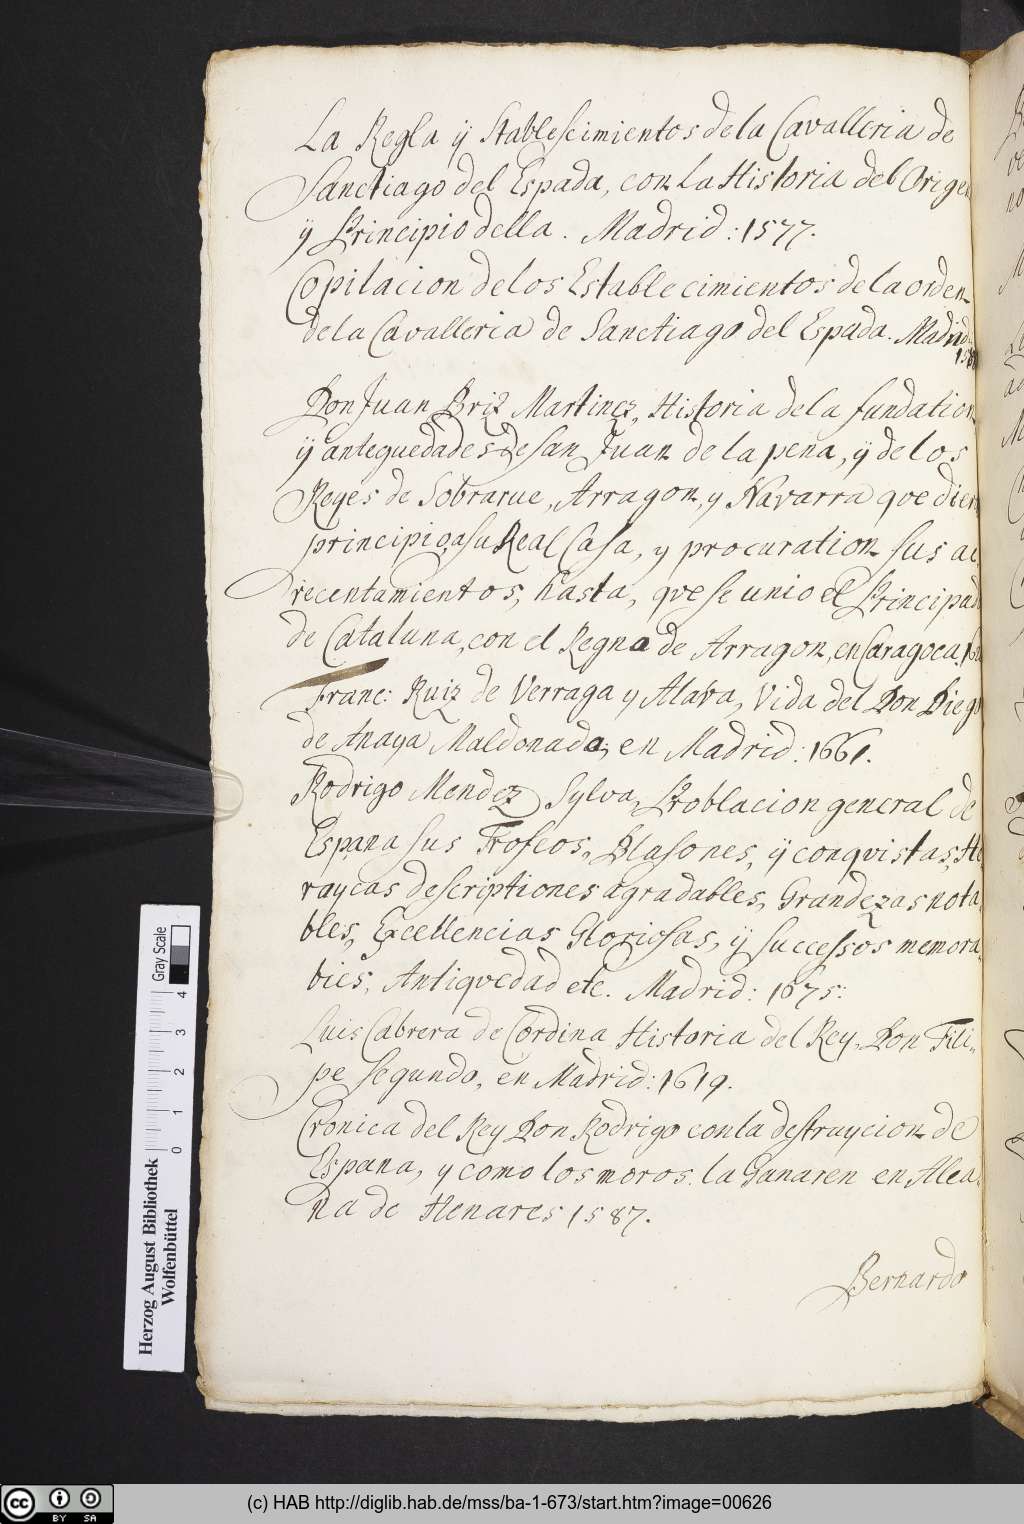 La Regla ÿ Stablescimientos de la Cavalleria de
Sanctiago del Espada, con la Historia del Origen
ÿ Principio della. Madrid: 1577.
Copilacion de los Establecimientos de la orden
de la Cavalleria de Sanctiago del Epada. Madrid.
Don Juan Briz Martinez, Historia de la fundation
ÿ anteguedades de san Juan de la pena, ÿ de los
Reyes de Sobrarue, Arragon, y Navarra que dien
principio, a su Real Casa, y procuration sus ac
recentamientos, hasta, que se unio el Principad
de Cataluna, con el Regno de Arragon, en Caragoca.
Franc: Ruiz de Verraga y Alava, Vida del Don Diego
de Anaya Maldonado, en Madrid: 1661.
Rodrigo Mendez Sylva, Problacion general de
Espana sus Trofeos, Blasones, ÿ conquistas, He,
raycas descriptiones agradables, Grandezas nota,
bles, Excellencias Gloriosas, ÿ successos memora,
bies, Antiquedad etc. Madrid: 1675:
Luis Cabrera de Cordina Historia del Rey, Don Fili,
pe segundo, en Madrid: 1619.
Cronica del Rey Don Rodrigo con la destruycion de
Espana, y como los moros la Ganaren en Alca,
na de Henares 1587.
Bernardo
Herzog August Bibliothek
Wolfenbüttel
0 1 2 3 4
Gray Scale
cc BY SA
(c) HAB http://diglib.hab.de/mss/ba-1-673/start.htm?image=00626